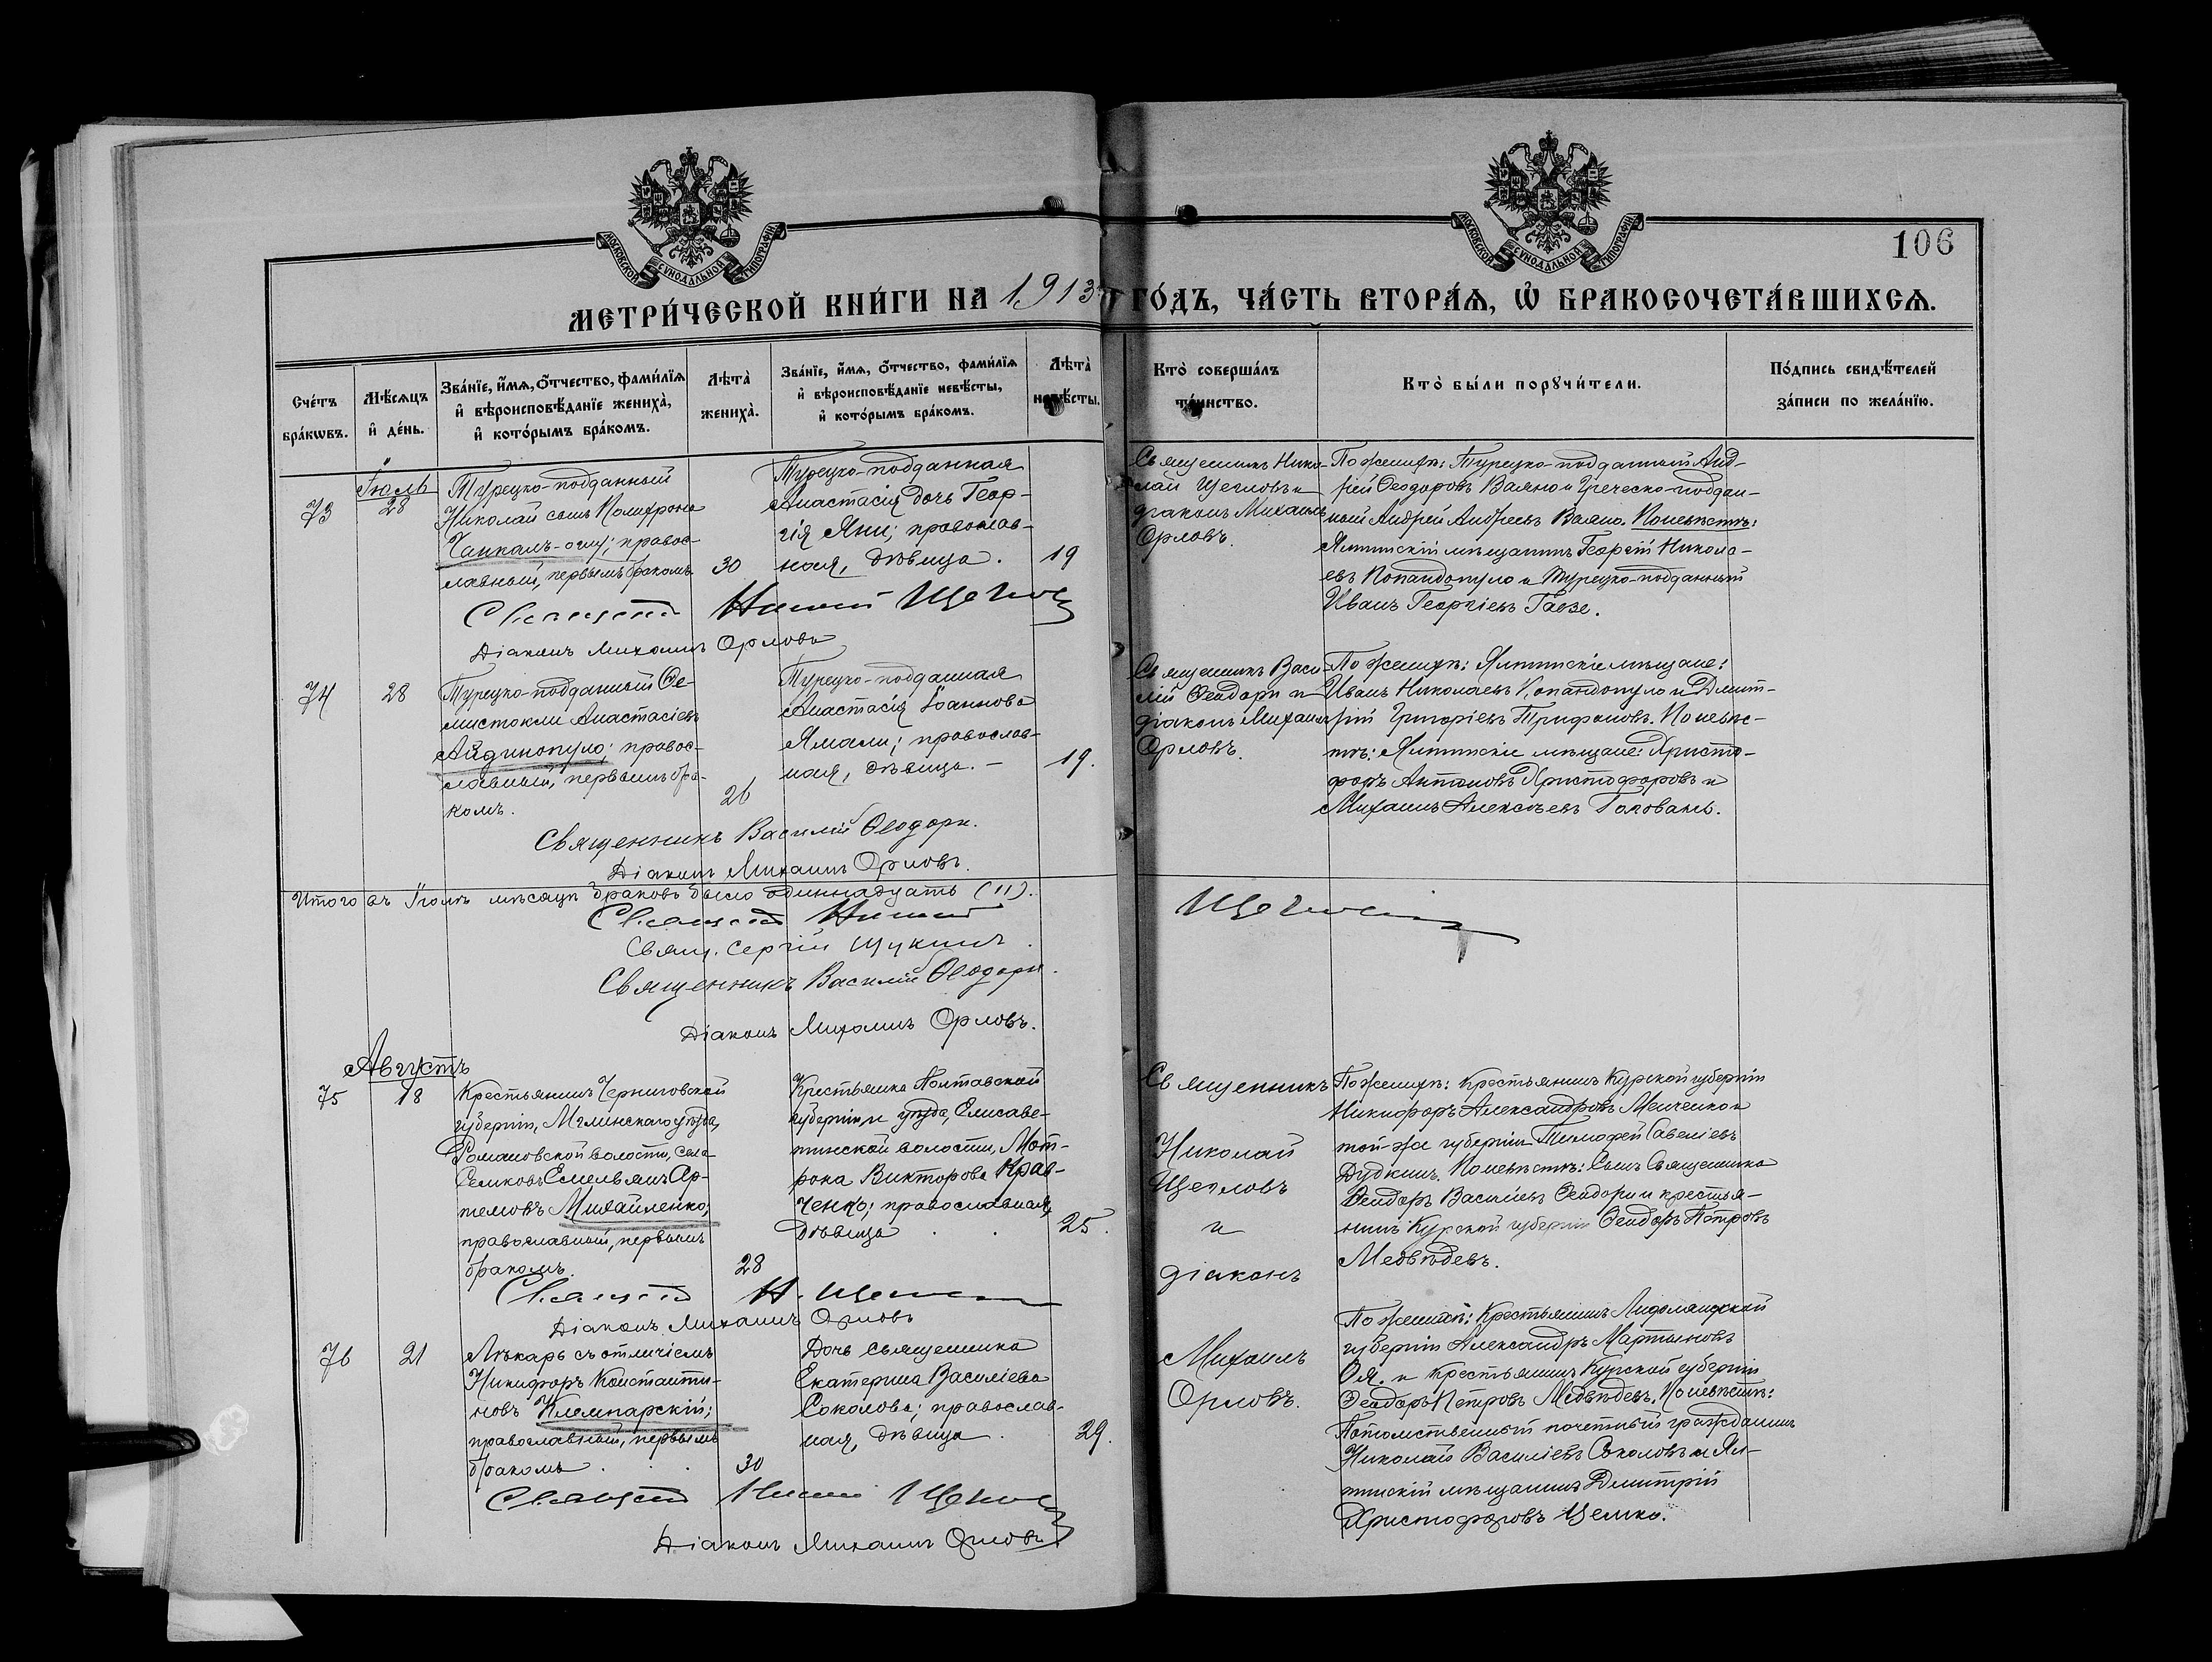 МОСКОВСКОЙ СУНОДАЛЬНОЙ ТИПОГРАФІИ
МОСКОВСКОЙ СУНОДАЛЬНОЙ ТИПОГРАФІИ
106
МЕТРИ́ЧЕСКОЙ КНИ́ГИ НА 1913 ГО́ДЪ, ЧА́СТЬ ВТОРА́Ѧ, Ѽ БРАКОСОЧЕТА́ВШИХСѦ.
Сче́тъ бра́кѡвъ.
Мѣ́сѧцъ и҆ де́нь.
Зва́нїе, и҆́мѧ, ѻ҆́тчество, фами́лїѧ
и҆ вѣроисповѣ́данїе жениха̀,
и҆ кото́рымъ бра́комъ.
Лѣ́та̀ жениха̀.
Зва́нїе, и҆́мѧ, ѻ҆́тчество, фами́лїѧ
и҆ вѣроисповѣ́данїе невѣ́сты,
и҆ кото́рымъ бра́комъ.
Лѣ́та̀ невѣ́сты.
Кто̀ соверша́лъ та́инство.
Кто̀ бы́ли порꙋчи́тели.
По́дпись свидѣ́телей
за́писи по жела́нїю.
Іюль
73
28
Турецко-подданный
Николай сынъ Полихрона
Чапкалъ-оглу; правос-
лавный, первымъ бракомъ
30
Турецко-подданная
Анастасія дочь Геор-
гія Яни; православ-
ная, дѣвица.
19
Священникъ Нико-
лай Щегловъ и
діаконъ Михаилъ
Орловъ.
По женихѣ: Турецко-подданный Анд-
рей Ѳеодоровъ Ваяно и Греческо-поддан-
ный Андрей Андреевъ Ваяно. По невѣстѣ:
Ялтинскій мѣщанинъ Георгій Никола-
евъ Попандопуло и Турецко-подданный
Иванъ Георгіевъ Гаезе.
Священникъ Николай Щегловъ
Діаконъ Михаилъ Орловъ
74
28
Турецко-подданный Ѳе-
мистокли Анастасіевъ
Айдинопуло; правос-
лавный, первымъ бра-
комъ.
26
Турецко-подданная
Анастасія Іоаннова
Ямали; православ-
ная, дѣвица. -
19.
Священникъ Васи-
лій Ѳеодори и
діаконъ Михаилъ
Орловъ.
По женихѣ: Ялтинскіе мѣщане:
Иванъ Николаевъ Попандопуло и Дмит-
рій Григоріевъ Трифоновъ. По невѣс-
тѣ: Ялтинскіе мѣщане: Христо-
форъ Антоновъ Христофоровъ и
Михаилъ Алексѣевъ Головань.
Священникъ Василій Ѳеодори.
Діаконъ Михаилъ Орловъ.
Итого въ Іюлѣ мѣсяцѣ браковъ было одиннадцать (11).
Священникъ Николай Щегловъ
Свящ. Сергій Щукинъ.
Священникъ Василій Ѳеодори.
Діаконъ Михаилъ Орловъ.
Августъ
75
18
Крестьянинъ Черниговской
губерніи, Мглинскаго уѣзда,
Романовской волости, села
Селковъ Емельянъ Ар-
темовъ Михайленко;
православный, первымъ
бракомъ.
28
Крестьянка Полтавской
губерніи и уѣзда, Елисаве-
тинской волости, Мот-
рона Викторова Крав-
ченко; православная,
дѣвица.
25.
Священникъ
Николай
Щегловъ
и
діаконъ
Михаилъ
Орловъ.
По женихѣ: Крестьянинъ Курской губерніи
Никифоръ Александровъ Менченко и
той-же губерніи Тимофей Савеліевъ
Дудкинъ. По невѣстѣ: Сынъ Священника
Ѳеодоръ Васильевъ Ѳеодори и крестья-
нинъ Курской губерніи Ѳеодоръ Петровъ
Медвѣдевъ.
Священникъ Н. Щегловъ
Діаконъ Михаилъ Орловъ
76
21
Лѣкарь съ отличіемъ
Никифоръ Константи-
новъ Клемпарскій;
православный, первымъ
бракомъ.
30
Дочь священника
Екатерина Василіева
Соколова; православ-
ная, дѣвица.
29.
По женихѣ: Крестьянинъ Лифляндской
губерніи Александръ Мартыновъ
Оя. и крестьянинъ Курской губерніи
Ѳеодоръ Петровъ Медвѣдевъ. По невѣстѣ:
Потомственный почетный гражданинъ
Николай Василіевъ Соколовъ и Ял-
тинскій мѣщанинъ Дмитрій
Христофоровъ Цемко.
Священникъ Николай Щегловъ
Діаконъ Михаилъ Орловъ